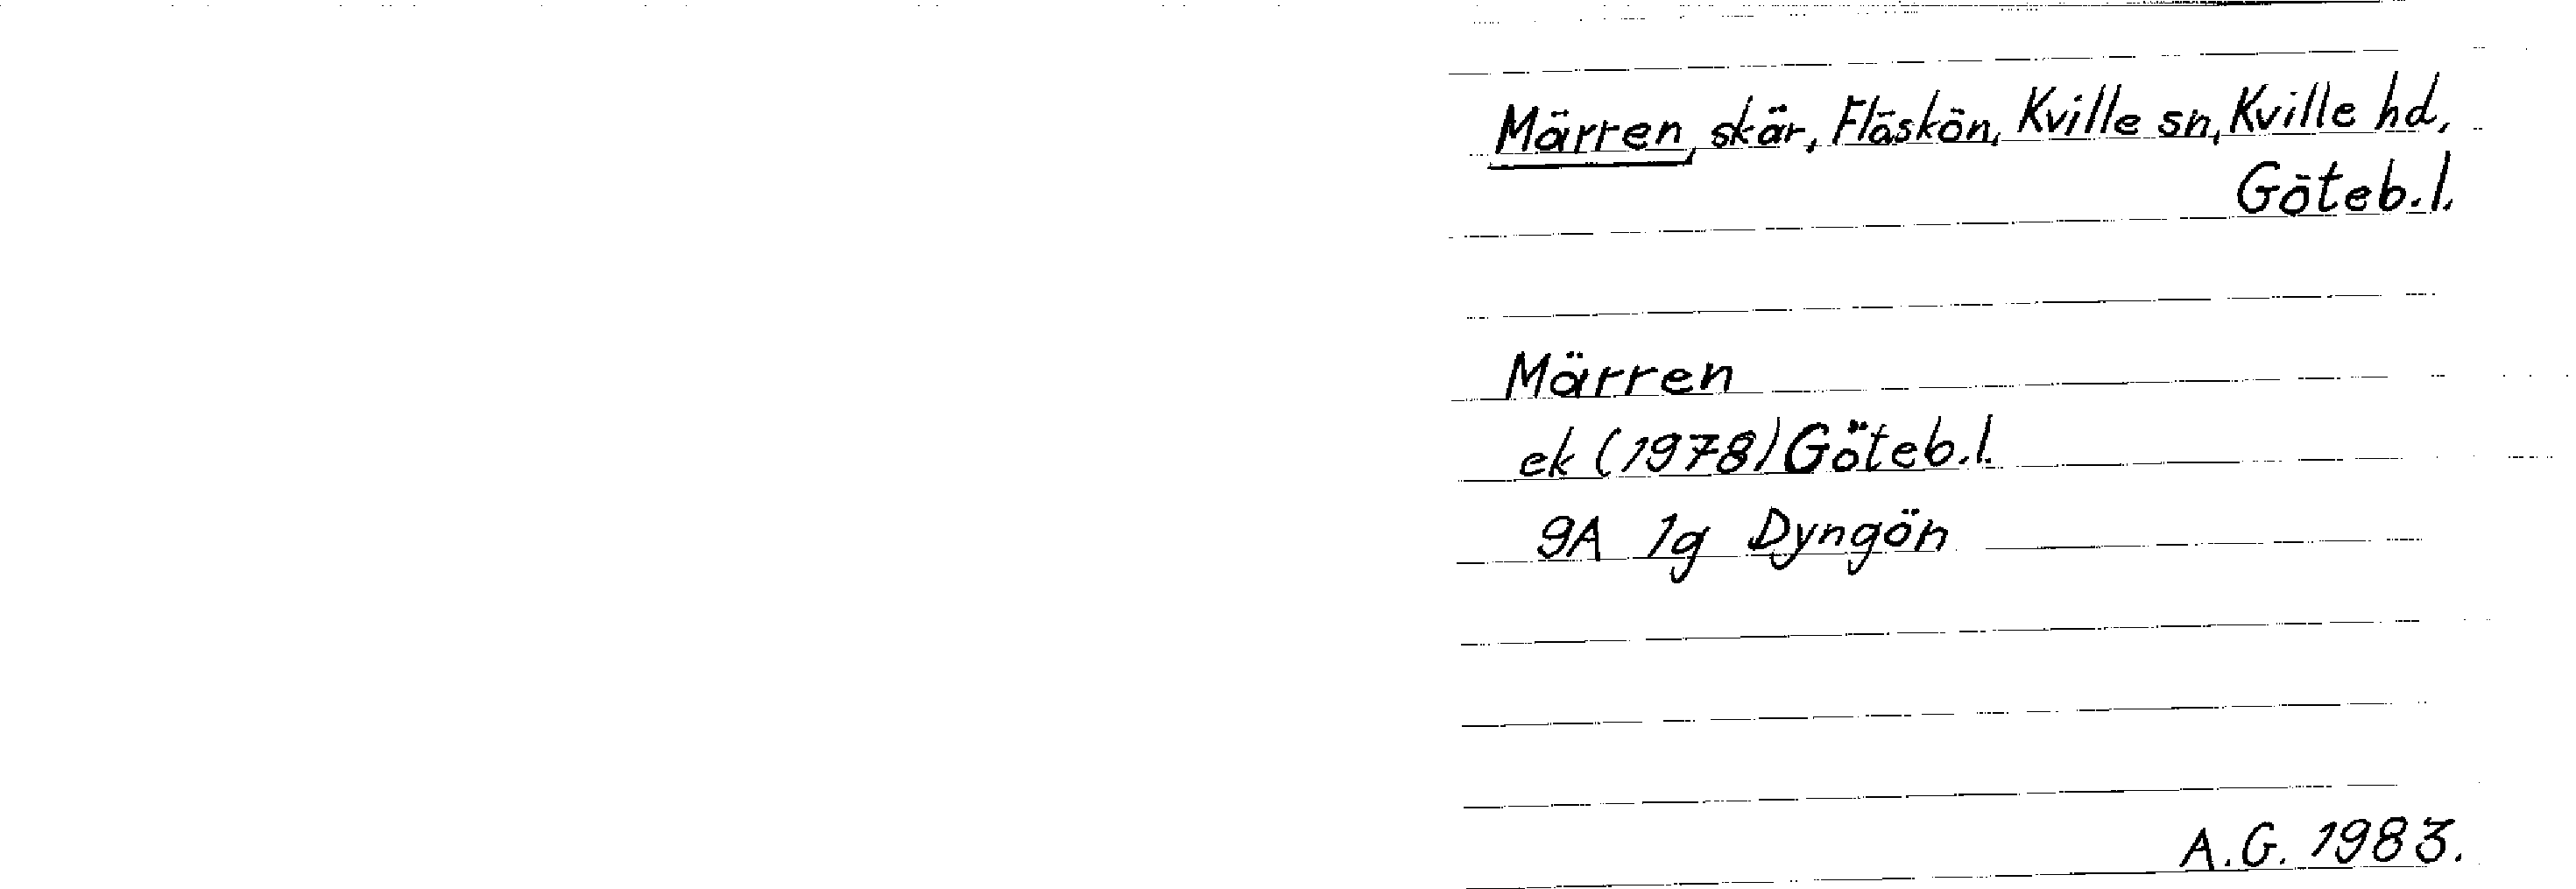 Märren, skär, Fläskön, Kville sn, Kville hd,
Göteb.l.
Märren
ek (1978) Göteb.l.
9A 1g Dyngön
A.G. 1983.